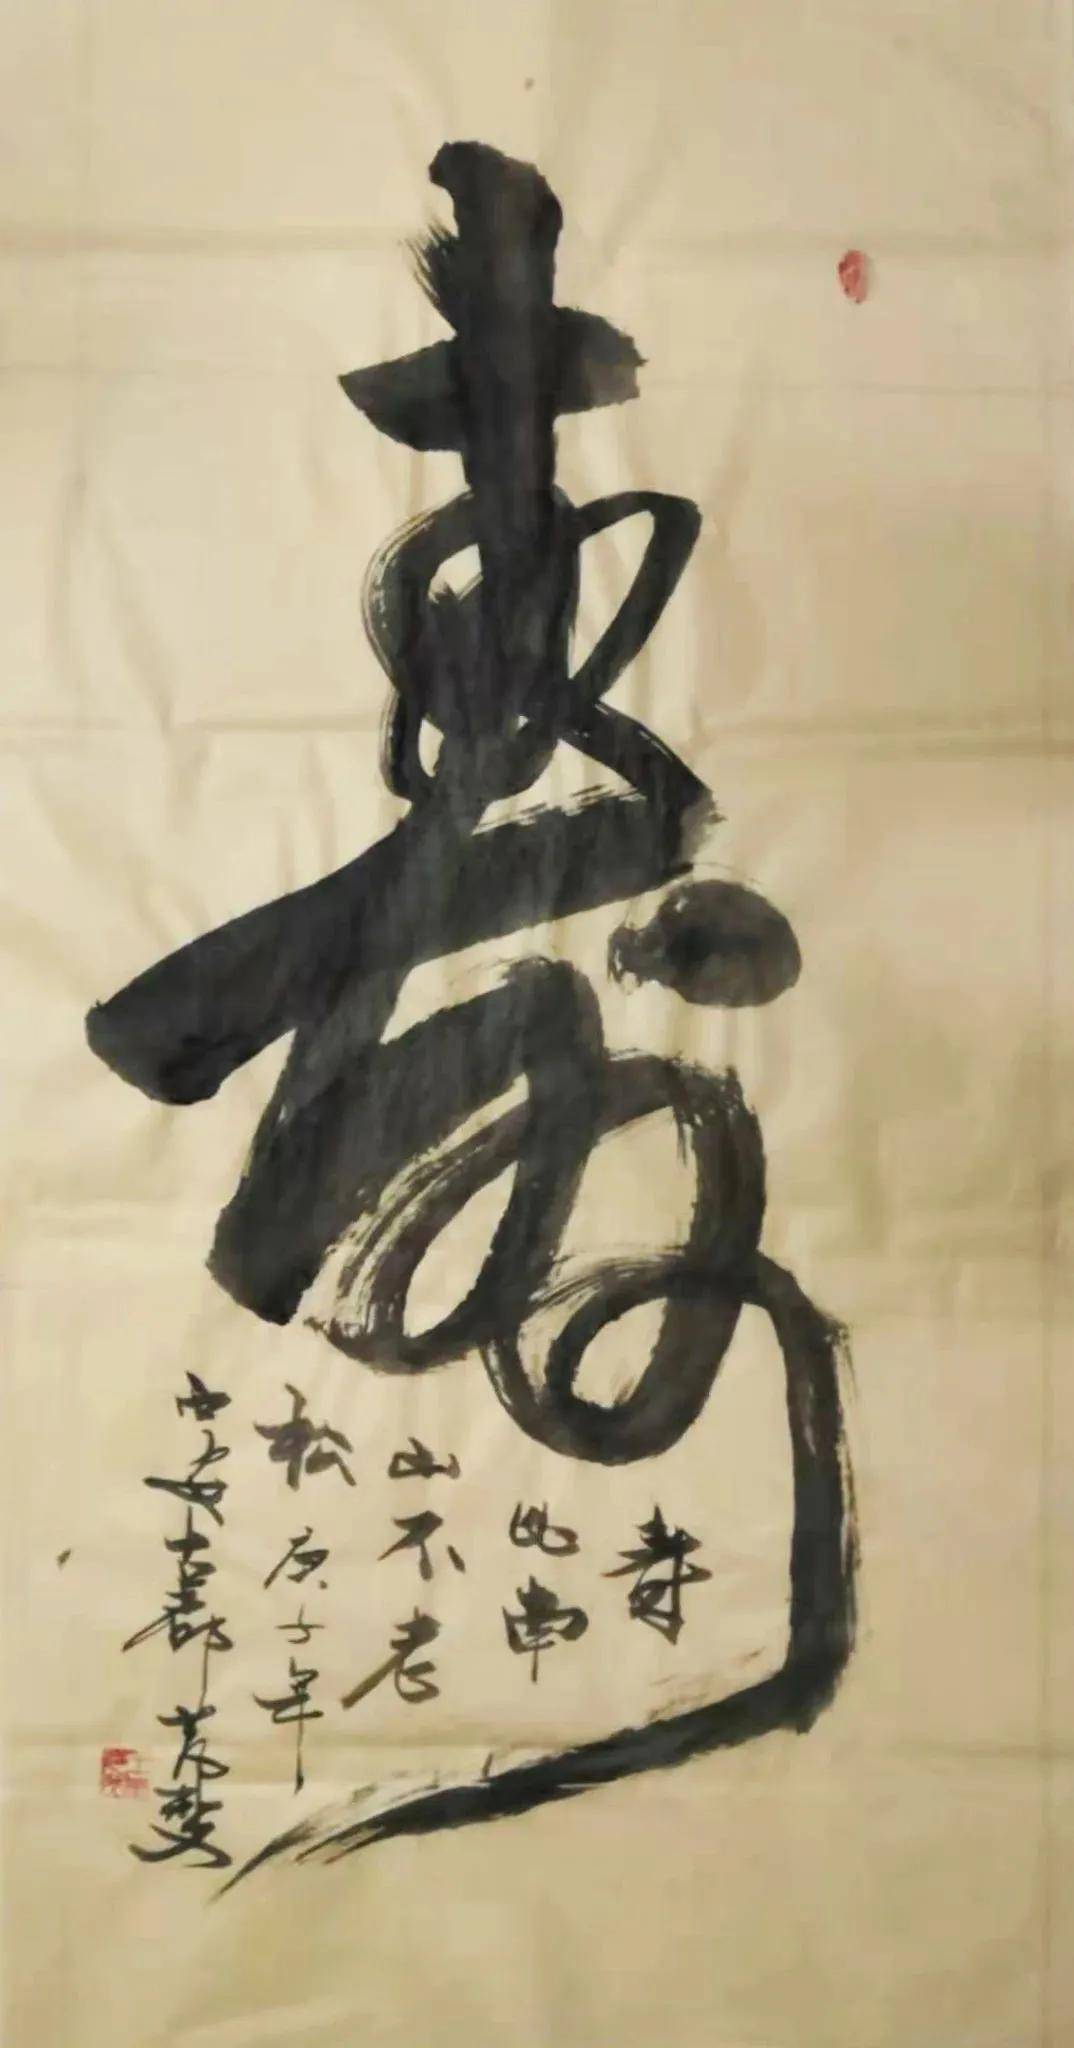 寿
寿
比南
山不老
松 庚子年
西安古都